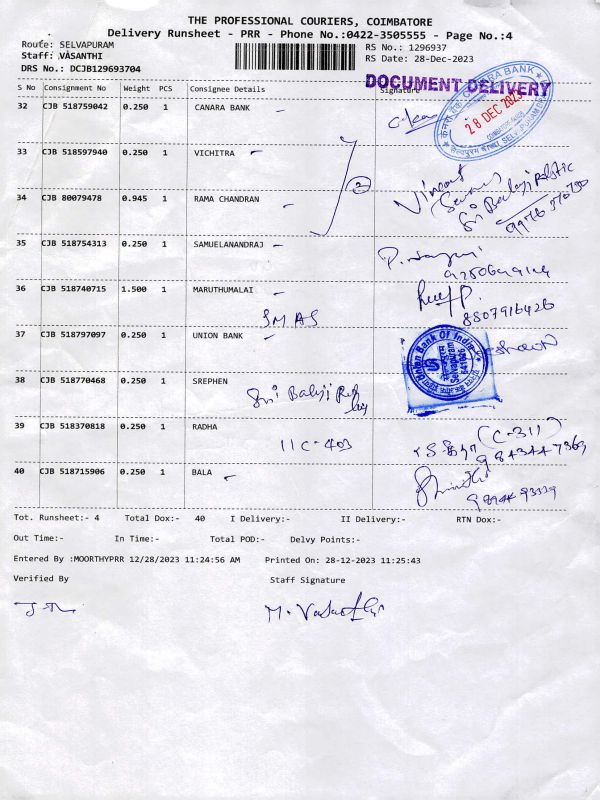 THE PROFESSIONAL COURIERS, COIMBATORE
Delivery Runsheet - PRR - Phone No.:0422-3505555 - Page No.:4
Route: SELVAPURAM
Staff: VASANTHI
DRS No.: DCJB129693704
RS No.: 1296937
RS Date: 28-Dec-2023
DOCUMENT DELIVERY
CANARA BANK
28 DEC 2023
S No Consignment No Weight PCS Consignee Details Signature
32 CJB 518759042 0.250 1 CANARA BANK
33 CJB 518597940 0.250 1 VICHITRA
2
34 CJB 80079478 0.945 1 RAMA CHANDRAN
Sri Balaji
35 CJB 518754313 0.250 1 SAMUELANANDRAJ
36 CJB 518740715 1.500 1 MARUTHUMALAI
8807916426
SMAS
37 CJB 518797097 0.250 1 UNION BANK
Union Bank Of India
Selvapuram
38 CJB 518770468 0.250 1 SREPHEN
Sri Balaji
39 CJB 518370818 0.250 1 RADHA
(C-311)
11C-403
9843447369
40 CJB 518715906 0.250 1 BALA
Tot. Runsheet:- 4 Total Dox:- 40 I Delivery:- II Delivery:- RTN Dox:-
Out Time:- In Time:- Total POD:- Delvy Points:-
Entered By :MOORTHYPRR 12/28/2023 11:24:56 AM Printed On: 28-12-2023 11:25:43
Verified By Staff Signature
M. Vasanthi